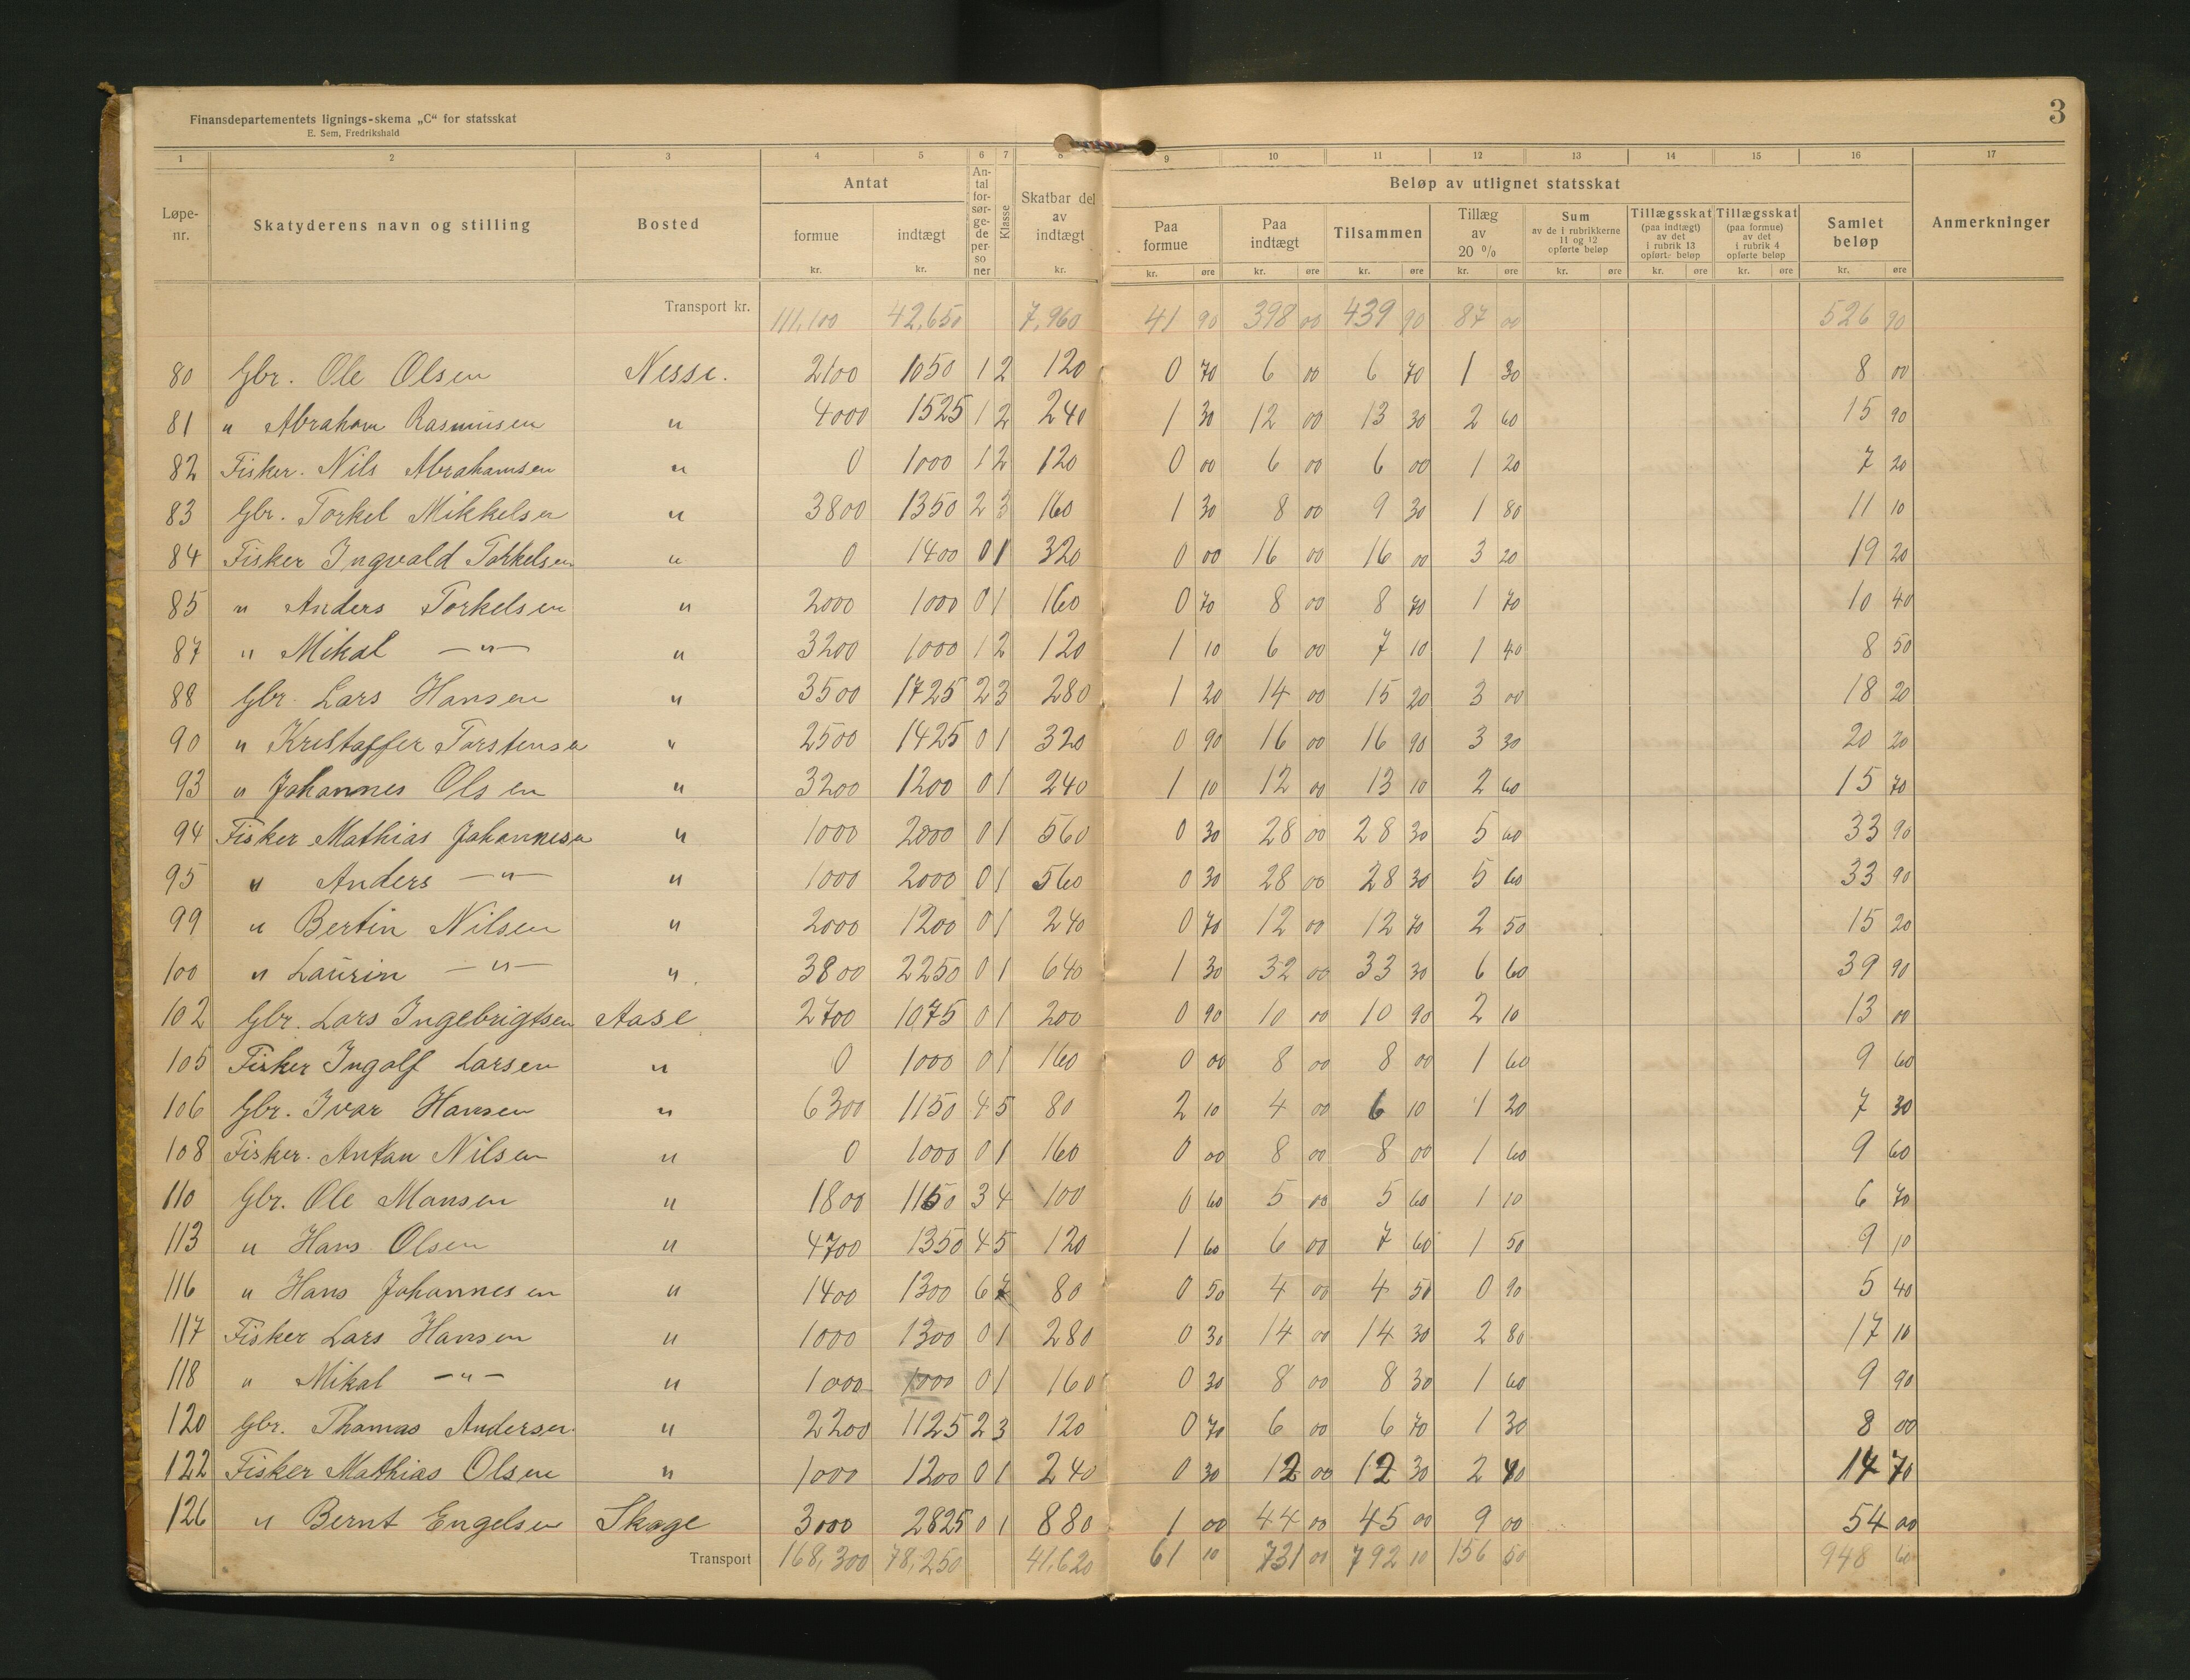 Finansdepartementets lignings-skema „C“ for statsskat
E. Sem, Fredrikshald
3
1 2 3 4 5 6 7 8 9 10 11 12 13 14 15 16 17
Løpe-nr. Skatyderens navn og stilling Bosted Antat formue kr. indtægt kr. Antal forsørgede personer Klasse Skatbar del av indtægt kr. Beløp av utlignet statsskat Paa formue kr. øre Paa indtægt kr. øre Tilsammen kr. øre Tillæg av 20 % kr. øre Sum av de i rubrikkerne 11 og 12 opførte beløp kr. øre Tillægsskat (paa indtægt) av det i rubrik 13 opførte beløp kr. øre Tillægsskat (paa formue) av det i rubrik 4 opførte beløp kr. øre Samlet beløp kr. øre Anmerkninger
Transport kr. 111,100 42,650 7,960 41 90 398 00 439 90 87 00 526 90
80 Gbr. Ole Olsen Nesse. 2100 1050 1 2 120 0 70 6 00 6 70 1 30 8 00
81 " Abraham Rasmusen " 4000 1525 1 2 240 1 30 12 00 13 30 2 60 15 90
82 Fisker. Nils Abrahamsen " 0 1000 1 2 120 0 00 6 00 6 00 1 20 7 20
83 Gbr. Torkel Mikkelsen " 3800 1350 2 3 160 1 30 8 00 9 30 1 80 11 10
84 Fisker Ingvald Torkelsen " 0 1400 0 1 320 0 00 16 00 16 00 3 20 19 20
85 " Anders Torkelsen " 2000 1000 0 1 160 0 70 8 00 8 70 1 70 10 40
87 " Mikal —"— " 3200 1000 1 2 120 1 10 6 00 7 10 1 40 8 50
88 Gbr. Lars Hansen " 3500 1725 2 3 280 1 20 14 00 15 20 3 00 18 20
90 " Kristaffer Torstensen " 2500 1425 0 1 320 0 90 16 00 16 90 3 30 20 20
93 " Johannes Olsen " 3200 1200 0 1 240 1 10 12 00 13 10 2 60 15 70
94 Fisker Mathias Johannesen " 1000 2000 0 1 560 0 30 28 00 28 30 5 60 33 90
95 " Anders —"— " 1000 2000 0 1 560 0 30 28 00 28 30 5 60 33 90
99 " Bertin Nilsen " 2000 1200 0 1 240 0 70 12 00 12 70 2 50 15 20
100 " Laurin —"— " 3800 2250 0 1 640 1 30 32 00 33 30 6 60 39 90
102 Gbr. Lars Ingebrigtsen Aase 2700 1075 0 1 200 0 90 10 00 10 90 2 10 13 00
105 Fisker Ingolf Larsen " 0 1000 0 1 160 0 00 8 00 8 00 1 60 9 60
106 Gbr. Ivar Hansen " 6300 1150 4 5 80 2 10 4 00 6 10 1 20 7 30
108 Fisker. Antan Nilsen " 0 1000 0 1 160 0 00 8 00 8 00 1 60 9 60
110 Gbr. Ole Monsen " 1800 1150 3 4 100 0 60 5 00 5 60 1 10 6 70
113 " Hans Olsen " 4700 1350 4 5 120 1 60 6 00 7 60 1 50 9 10
116 " Hans Johannesen " 1400 1300 6 7 80 0 50 4 00 4 50 0 90 5 40
117 Fisker Lars Hansen " 1000 1300 0 1 280 0 30 14 00 14 30 2 80 17 10
118 " Mikal —"— " 1000 1000 0 1 160 0 30 8 00 8 30 1 60 9 90
120 Gbr. Thomas Andersen. " 2200 1125 2 3 120 0 70 6 00 6 70 1 30 8 00
122 Fisker Mathias Olsen " 1000 1200 0 1 240 0 30 12 00 12 30 2 40 14 70
126 " Bernt Engelsen Skage 3000 2825 0 1 880 1 00 44 00 45 00 9 00 54 00
Transport 168,300 78,250 41,620 61 10 731 00 792 10 156 50 948 60